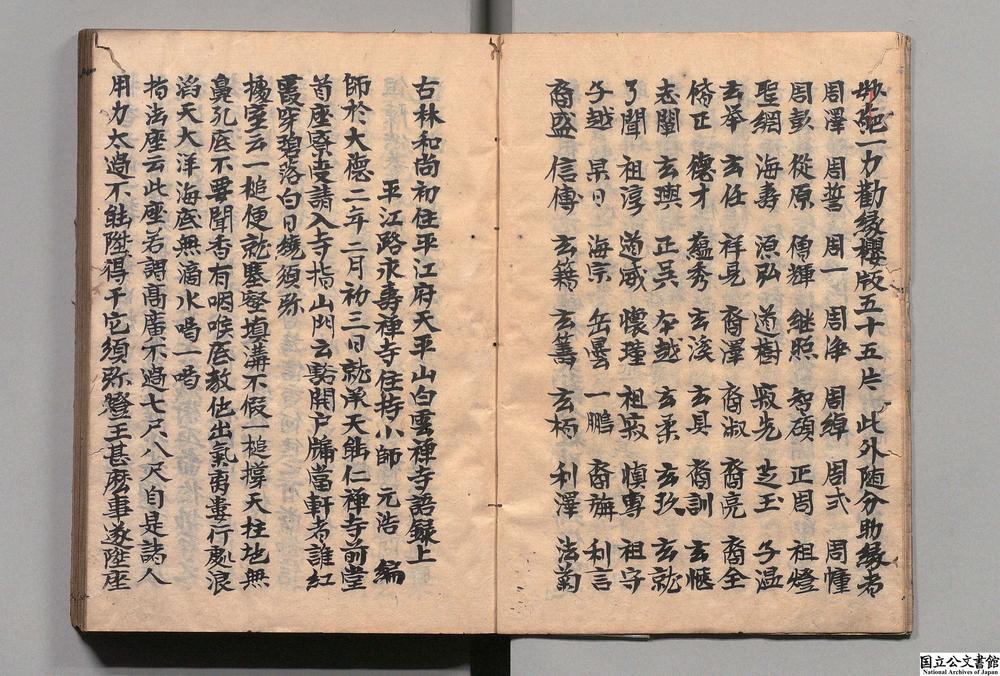 妙葩一力勸縁櫻版五十五片　此外随分助縁者
周澤　周誓　周一　周浄　周皡　周式　周憧
周彭　從原　傳輝　继照　智碩　正周　祖燈
聖網　海壽　源弘　道樹　寂光　芝玉　子温
玄举　玄任　祥見　裔澤　裔淑　裔亮　裔全
脩正　德才　蕴秀　玄溪　玄具　裔訓　玄愜
志闡　玄璵　正吴　本越　玄柔　玄玖　玄就
了聞　祖淳　道威　懷瑾　祖寂　慎專　祖守
子越　杲日　海宗　岳雲　一鵬　裔旃　利言
裔盛　信傳　玄籍　玄籌　玄朽　利澤　法菊
古林和尚初住平江府天平山白雲禅寺語録上
平江路永壽禅寺住持小師　元浩　編
師於大德二年二月初三日就承天能仁禅寺前堂
首座寮受請入寺指山門云豁開戸牖當軒者誰紅
霞穿碧落白日繞須弥
據室云一槌便就塞壑填溝不假一槌撑天柱地無
鼻孔底不要聞香有咽喉底教他出氣有妻行處浪
滔天大洋海底無滴水喝一喝
指法座云此座若謂髙廣不過七尺八尺自是諸人
用力太過不能陞得干它須弥燈王甚麽事遂陞座
国立公文書館
National Archives of Japan